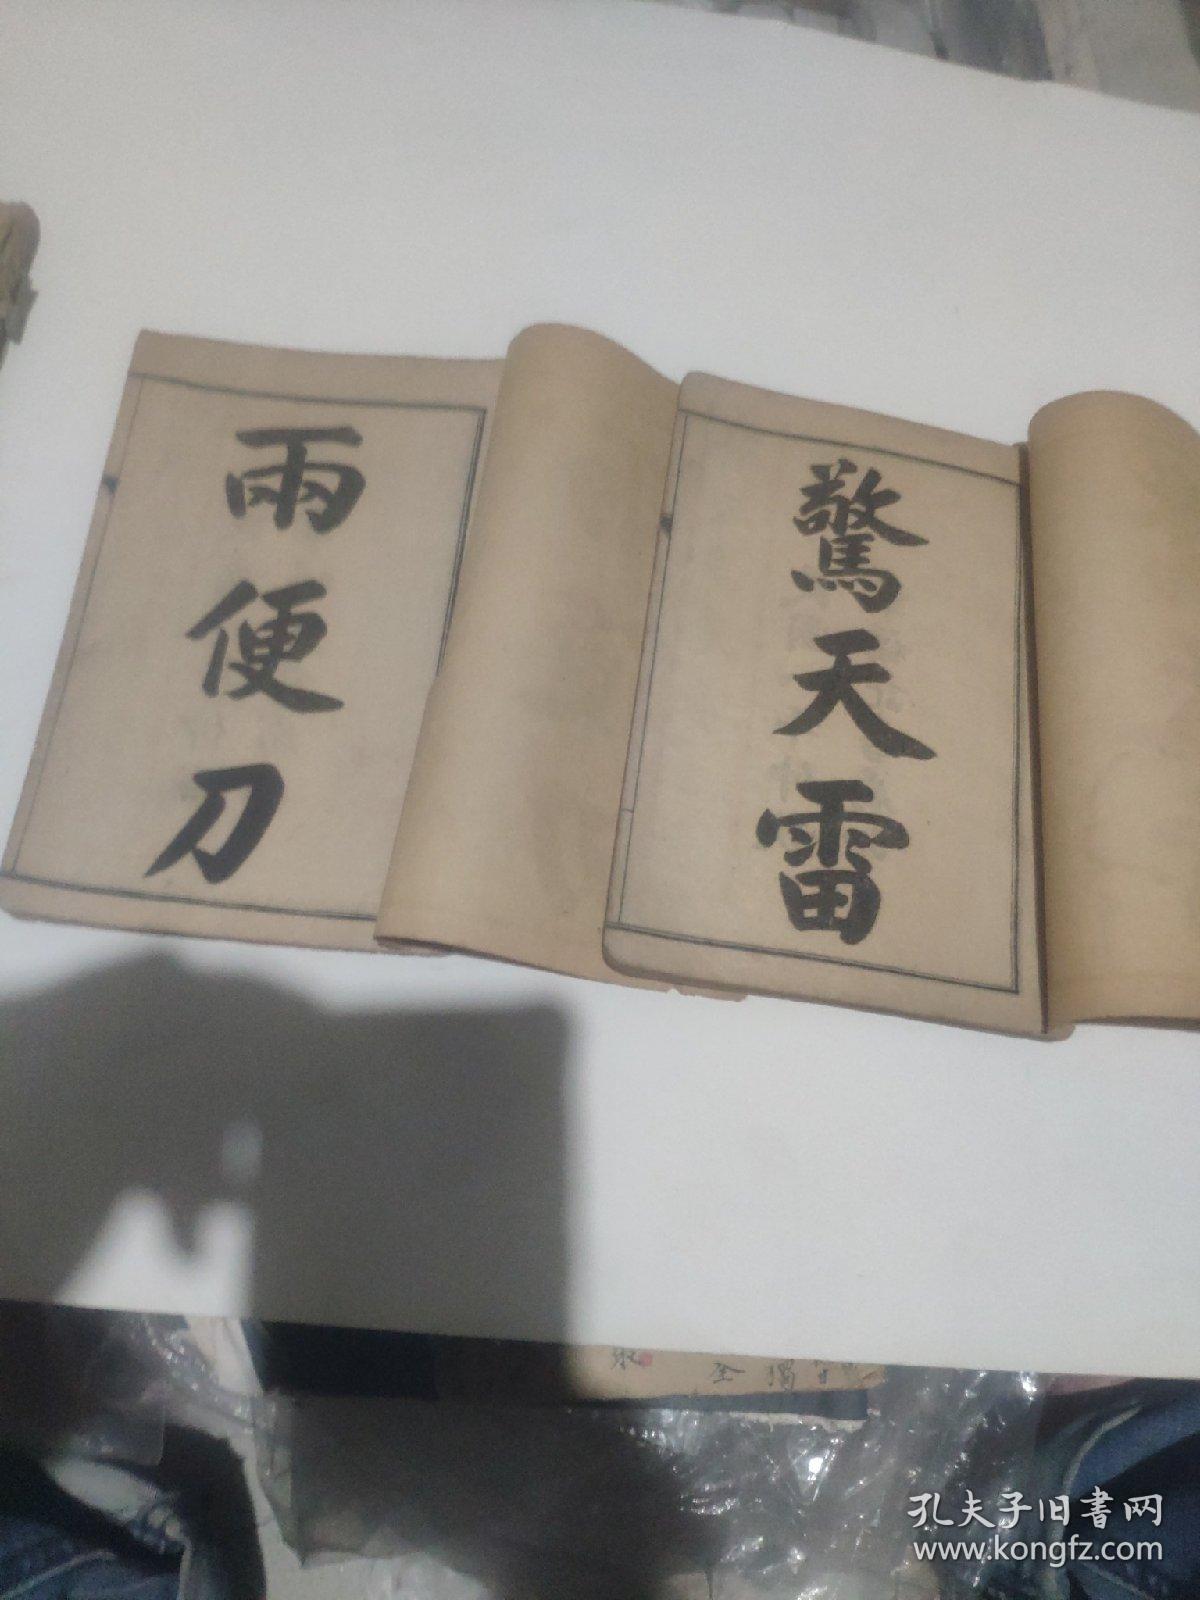 驚天雷
雨便刀
全
孔夫子旧書网
www.kongfz.com